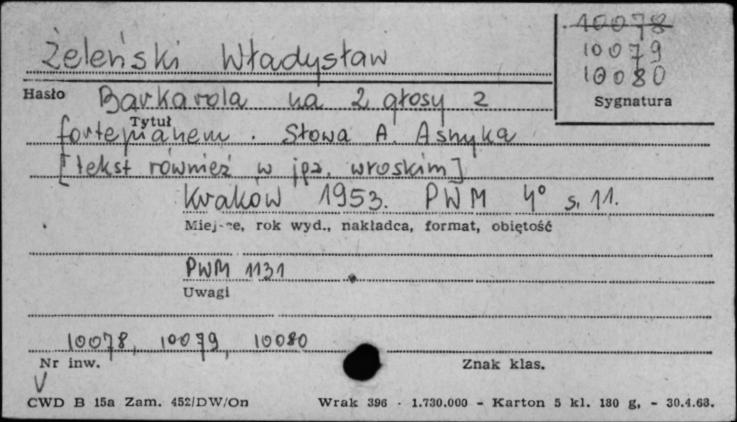 10078
10079
10080
Sygnatura
Żeleński Władysław
Hasło
Barkarola na 2 głosy z
Tytuł
fortepianem. Słowa A. Asnyka
[tekst również w jęz. włoskim]
Kraków 1953. PWM 4° s. 11.
Miejsce, rok wyd., nakładca, format, obiętość
PWM 1131
Uwagi
10078, 10079, 10080
Nr inw.
Znak klas.
CWD B 15a Zam. 452/DW/On Wrak 396 - 1.730.000 - Karton 5 kl. 180 g, - 30.4.63.